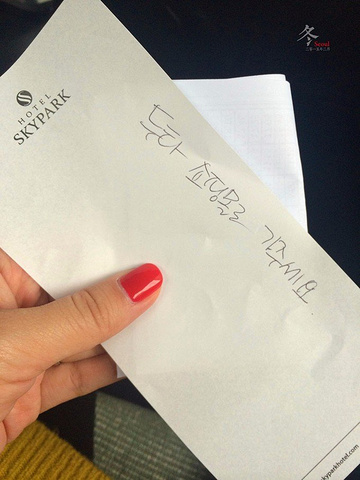 HOTEL
SKYPARK
두타 쇼핑몰
冬
Seoul
skyparkhotel.com